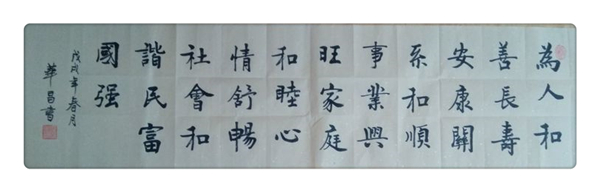 為人和
善長壽
安康關
系和順
事業興
旺家庭
和睦心
情舒暢
社會和
諧民富
國强
戊戌年春月
華昌書